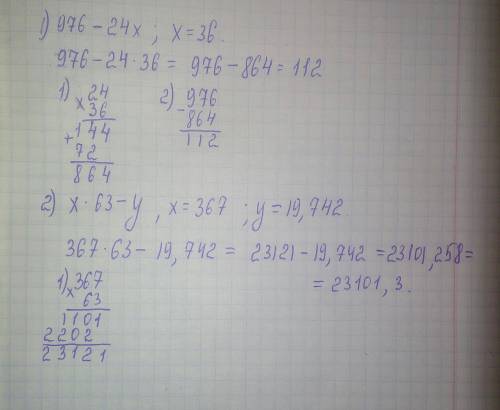 1) 976 - 24x ; x = 36.
976 - 24 · 36 = 976 - 864 = 112
1) 24
x 36
+ 144
72
864
2) - 976
864
112
2) x · 63 - y , x = 367 ; y = 19,742.
367 · 63 - 19,742 = 23121 - 19,742 = 23101,258 =
= 23101,3.
1) x 367
63
1101
2202
23121